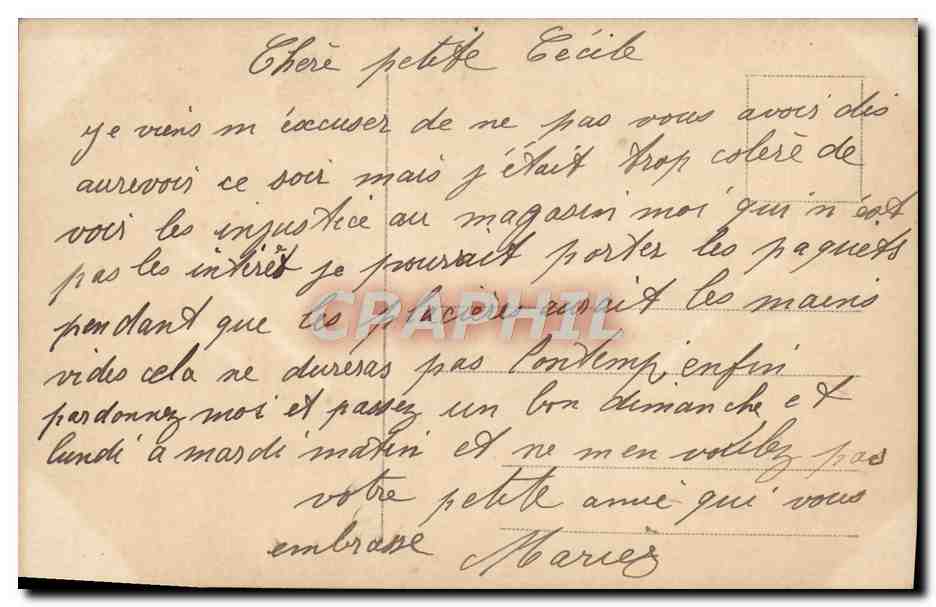 Chère petite Cécile
je viens m'éxcuser de ne pas vous avoir dis
aurevoir ce soir mais j'était trop colère de
voir les injustice au magasin moi qui n'est
pas les intérêt je pourait porter les paquets
pendant que les placières aurait les mains
vides cela ne dureras pas lontemp enfin
pardonnez moi et passez un bon dimanche et
lundi a mardi matin et ne m'en voulez pas
votre petite amie qui vous
embrasse
CPAPHIL